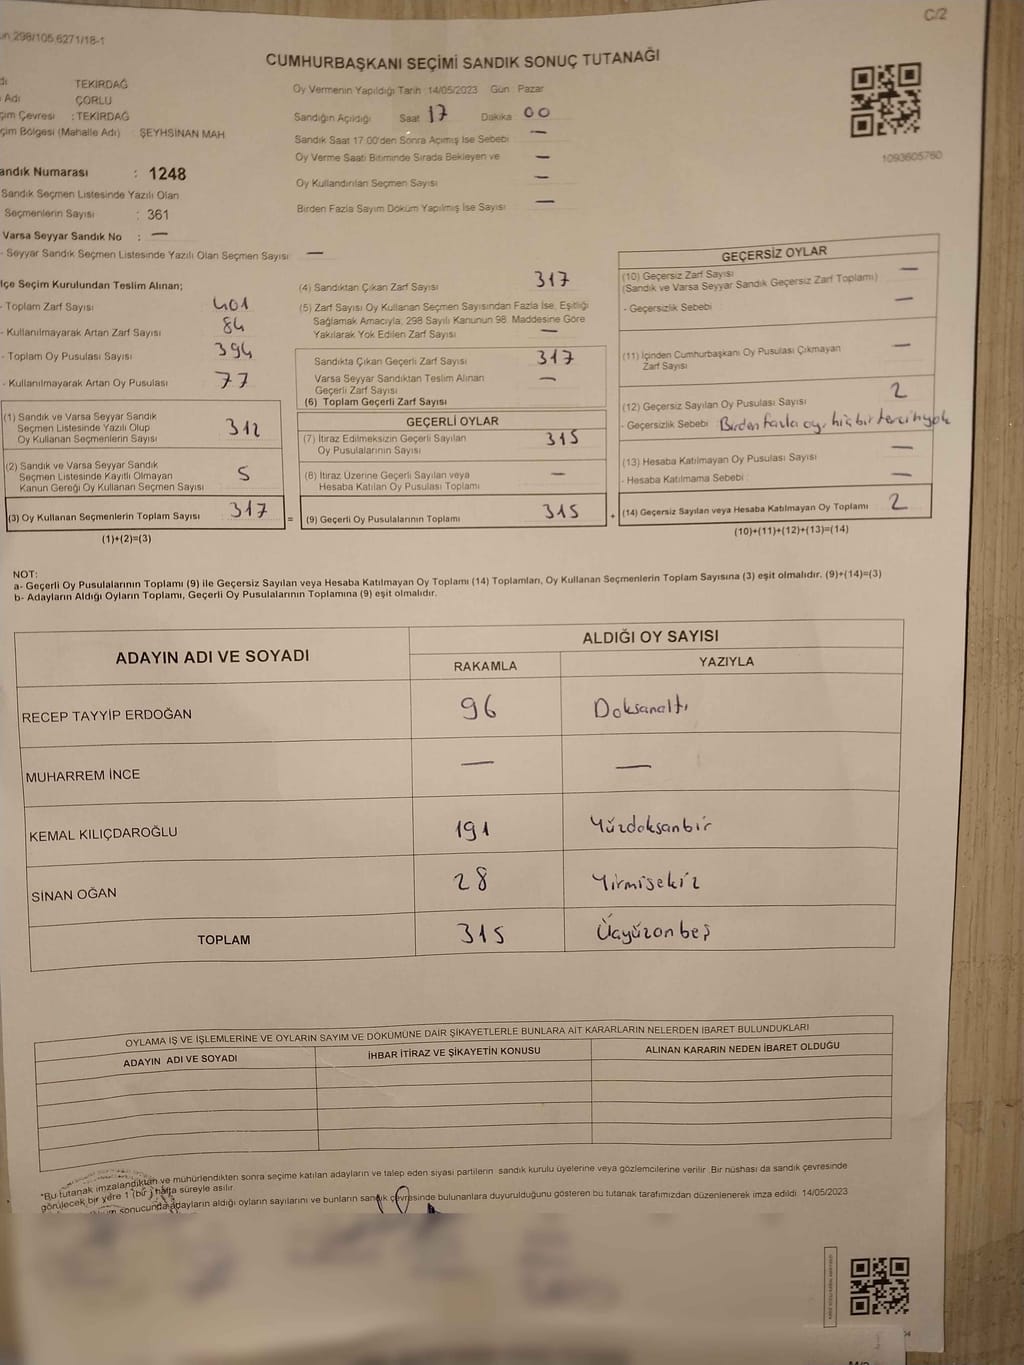 C/2
298/105.6271/18-1
CUMHURBAŞKANI SEÇİMİ SANDIK SONUÇ TUTANAĞI
TEKİRDAĞ
Adı ÇORLU
Çevresi : TEKİRDAĞ
Bölgesi (Mahalle Adı) : ŞEYHSİNAN MAH
Numarası : 1248
Sandık Seçmen Listesinde Yazılı Olan
Seçmenlerin Sayısı : 361
Varsa Seyyar Sandık No : —
- Seyyar Sandık Seçmen Listesinde Yazılı Olan Seçmen Sayısı —
Oy Vermenin Yapıldığı Tarih :14/05/2023 Gün : Pazar
Sandığın Açıldığı Saat 17 Dakika 00
Sandık Saat 17:00'den Sonra Açımış İse Sebebi —
Oy Verme Saati Bitiminde Sırada Bekleyen ve —
Oy Kullandırılan Seçmen Sayısı —
Birden Fazla Sayım Döküm Yapılmış İse Sayısı —
1093605760
Seçim Kurulundan Teslim Alınan;
- Toplam Zarf Sayısı 401
- Kullanılmayarak Artan Zarf Sayısı 84
- Toplam Oy Pusulası Sayısı 394
- Kullanılmayarak Artan Oy Pusulası 77
(1) Sandık ve Varsa Seyyar Sandık
Seçmen Listesinde Yazılı Olup
Oy Kullanan Seçmenlerin Sayısı 312
(2) Sandık ve Varsa Seyyar Sandık
Seçmen Listesinde Kayıtlı Olmayan
Kanun Gereği Oy Kullanan Seçmen Sayısı 5
(3) Oy Kullanan Seçmenlerin Toplam Sayısı 317
(1)+(2)=(3)
(4) Sandıktan Çıkan Zarf Sayısı 317
(5) Zarf Sayısı Oy Kullanan Seçmen Sayısından Fazla İse, Eşitliği
Sağlamak Amacıyla, 298 Sayılı Kanunun 98. Maddesine Göre
Yakılarak Yok Edilen Zarf Sayısı —
Sandıkta Çıkan Geçerli Zarf Sayısı 317
Varsa Seyyar Sandıktan Teslim Alınan
Geçerli Zarf Sayısı —
(6) Toplam Geçerli Zarf Sayısı
GEÇERLİ OYLAR
(7) İtiraz Edilmeksizin Geçerli Sayılan
Oy Pusulalarının Sayısı 315
(8) İtiraz Üzerine Geçerli Sayılan veya
Hesaba Katılan Oy Pusulası Toplamı —
= (9) Geçerli Oy Pusulalarının Toplamı 315
GEÇERSİZ OYLAR
(10) Geçersiz Zarf Sayısı
(Sandık ve Varsa Seyyar Sandık Geçersiz Zarf Toplamı) —
- Geçersizlik Sebebi —
(11) İçinden Cumhurbaşkanı Oy Pusulası Çıkmayan
Zarf Sayısı —
(12) Geçersiz Sayılan Oy Pusulası Sayısı 2
- Geçersizlik Sebebi Birden fazla oy, hiçbir tercih yok
(13) Hesaba Katılmayan Oy Pusulası Sayısı —
- Hesaba Katılmama Sebebi : —
+ (14) Geçersiz Sayılan veya Hesaba Katılmayan Oy Toplamı 2
(10)+(11)+(12)+(13)=(14)
NOT:
a- Geçerli Oy Pusulalarının Toplamı (9) ile Geçersiz Sayılan veya Hesaba Katılmayan Oy Toplamı (14) Toplamları, Oy Kullanan Seçmenlerin Toplam Sayısına (3) eşit olmalıdır. (9)+(14)=(3)
b- Adayların Aldığı Oyların Toplamı, Geçerli Oy Pusulalarının Toplamına (9) eşit olmalıdır.
ADAYIN ADI VE SOYADI ALDIĞI OY SAYISI
RAKAMLA YAZIYLA
RECEP TAYYİP ERDOĞAN 96 Doksanaltı
MUHARREM İNCE — —
KEMAL KILIÇDAROĞLU 191 Yüzdoksanbir
SİNAN OĞAN 28 Yirmisekiz
TOPLAM 315 Üçyüzonbeş
OYLAMA İŞ VE İŞLEMLERİNE VE OYLARIN SAYIM VE DÖKÜMÜNE DAİR ŞİKAYETLERLE BUNLARA AİT KARARLARIN NELERDEN İBARET BULUNDUKLARI
ADAYIN ADI VE SOYADI İHBAR İTİRAZ VE ŞİKAYETİN KONUSU ALINAN KARARIN NEDEN İBARET OLDUĞU
*Bu tutanak imzalandıktan ve mühürlendikten sonra seçime katılan adayların ve talep eden siyasi partilerin sandık kurulu üyelerine veya gözlemcilerine verilir. Bir nüshası da sandık çevresinde
görülecek bir yere 1 (bir) hafta süreyle asılır.
sonucunda adayların aldığı oyların sayılarını ve bunların sandık çevresinde bulunanlara duyurulduğunu gösteren bu tutanak tarafımızdan düzenlenerek imza edildi. 14/05/2023